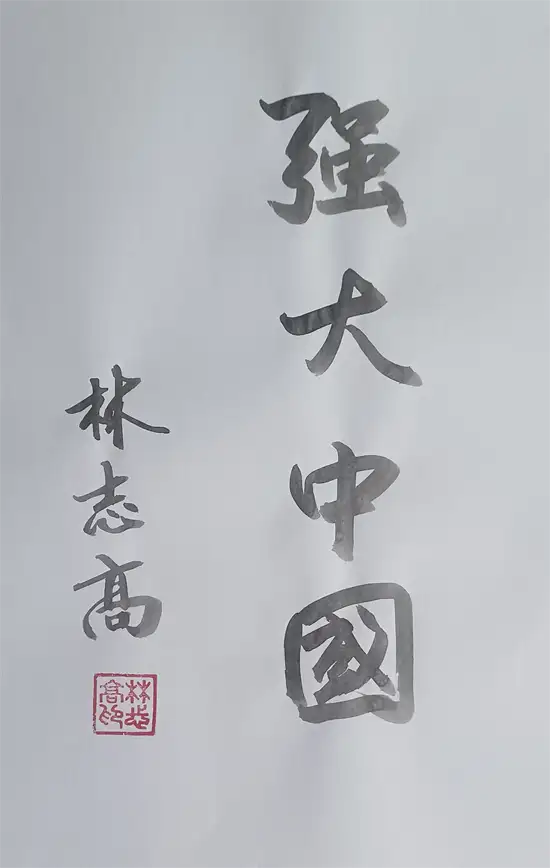 强大中國
林志高
林志高印